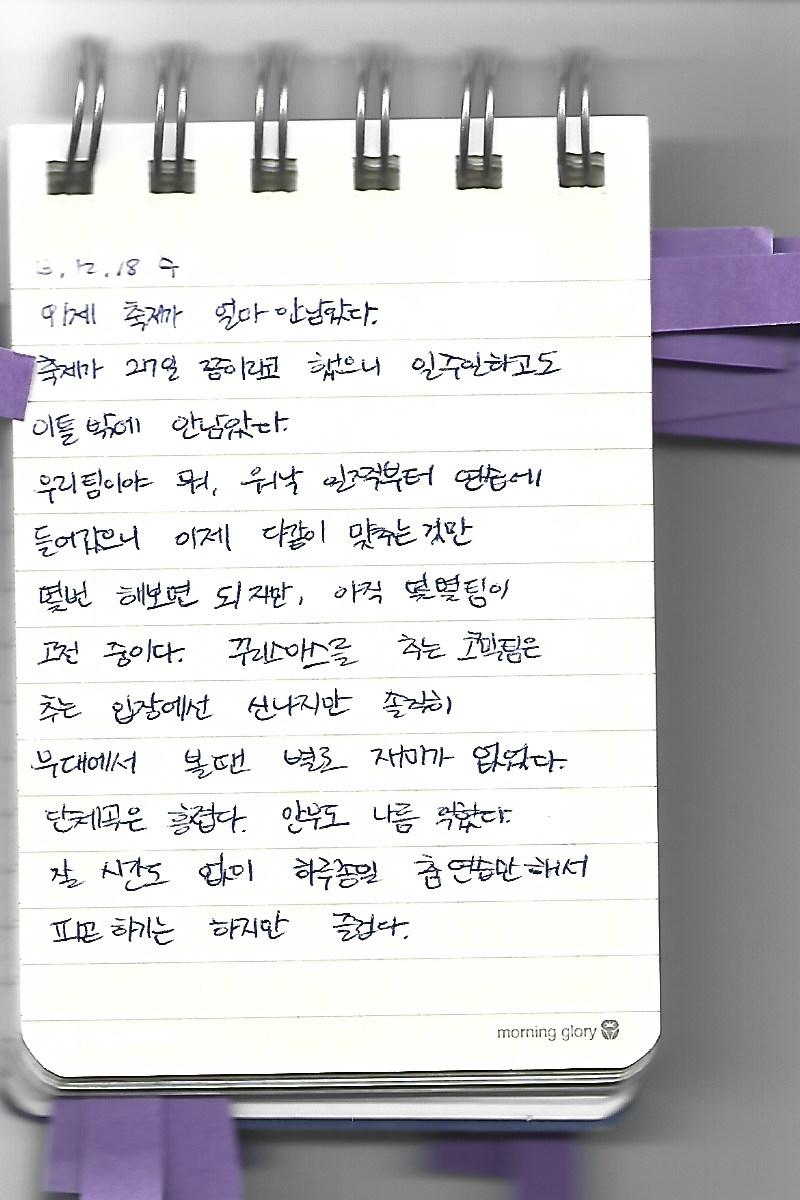 3.12.18 수
이제 축제가 얼마 안남았다.
축제가 27일 쯤이라고 했으니 일주일하고도
이틀 밖에 안남았다.
우리팀이야 뭐, 워낙 일찍부터 연습에
들어갔으니 이제 다같이 맞추는 것만
몇번 해보면 되지만, 아직 몇몇팀이
고전 중이다. 꾸리스마스를 추는 코믹팀은
추는 입장에선 신나지만 솔직히
무대에서 볼땐 별로 재미가 없었다.
단체곡은 흥겹다. 안무도 나름 악했다.
잘 시간도 없이 하루종일 춤연습만해서
피곤하기는 하지만 즐겁다.
morning glory